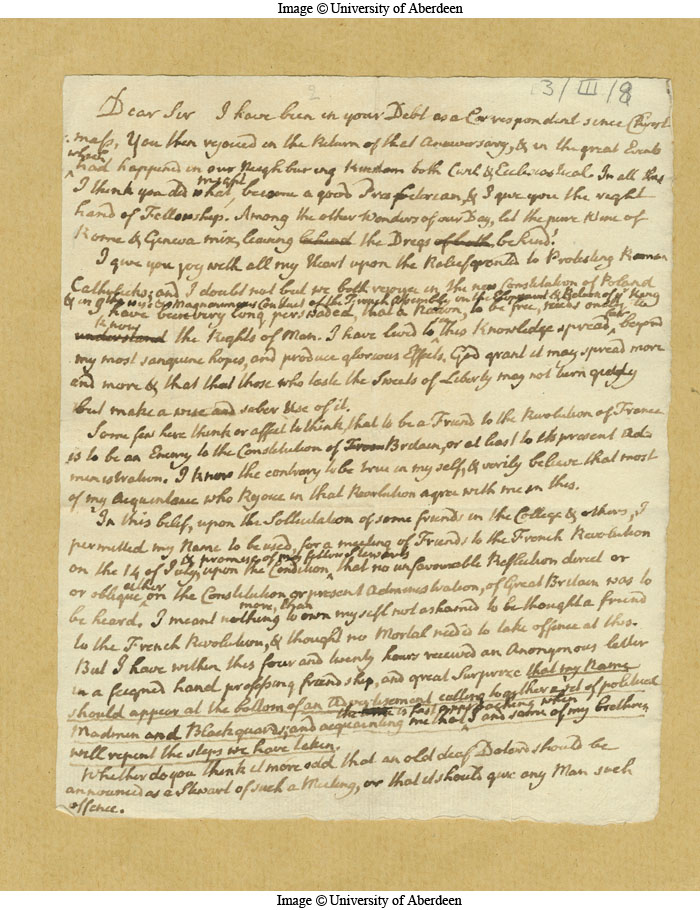 Image © University of Aberdeen
3/III/8
Dear Sir I have been in your Debt as a Correspondent since Christ
mass, You then rejoiced in the Return of that Anniversary, & in the great Events
which
had happened in our Neighbouring Kingdom both Civil & Ecclesiastical. In all this
I think you did what became a good Presbiterian, & I give you the right
hand of Fellowship. Among the other Wonders of our Day, let the pure Wine of
Rome & Geneva mix, leaving behind the Dregs of both behind!
I give you joy with all my Heart upon the Relief granted to Protesting Roman
Catholicks; and I doubt not but we both rejoice in the new Constitution of Poland
& in the wise & magnanimous Conduct of the French Assembly on the Elopement & Return of the King
I have been very long perswaded, that a Nation, to be free, needs only to
know
understand the Rights of Man. I have lived to see this Knowledge spread far beyond
my most sanguine hopes, and produce glorious Effects. God grant it may spread more
and more & that that those who taste the Sweets of Liberty may not turn giddy
but make a wise and sober Use of it.
Some few here think or affect to think, that to be a Friend to the Revolution of France
is to be an Enemy to the Constitution of Fran Britain, or at least to its present Ad-
ministration. I know the contrary to be true in my self, & verily believe that most
of my Acquaintance who Rejoice in that Revolution agree with me in this.
In this belief, upon the Sollicitation of some friends in the College & others, I
permitted my Name to be used, for a meeting of Friends to the French Revolution
& promise of my fellow Stewards
on the 14 of July, upon the Condition, that no unfavourable Reflection direct or
or oblique either on the Constitution or present Administration, of Great Britain was to
more, than
be heard, I meant nothing to own my self not ashamed to be thought a friend
to the French Revolution, & thought no Mortal needed to take offence at this.
But I have within this four and twenty hours received an Anonymous letter
in a feigned hand professing friendship, and great Surprize that my Name
should appear at the bottom of an Advertisement calling together a set of political
the is fast approaching when
Madmen and Blackguards; and acquainting me that I and some of my brethren
will repent the steps we have taken.
Whether do you think it more odd that an old deaf Dotard should be
announced as a Stewart of such a Meeting, or that it should give any Man such
offence.
Image © University of Aberdeen